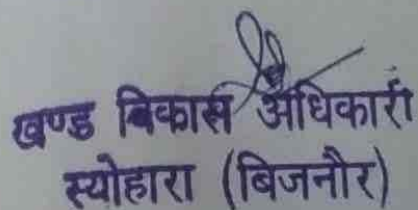 खण्ड बिकास अधिकारी
स्योहारा (बिजनौर)